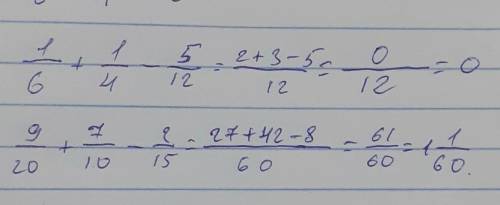 1/6 + 1/4 - 5/12 = (2+3-5)/12 = 0/12 = 0
9/20 + 7/10 - 2/15 = (27+42-8)/60 = 61/60 = 1 1/60.